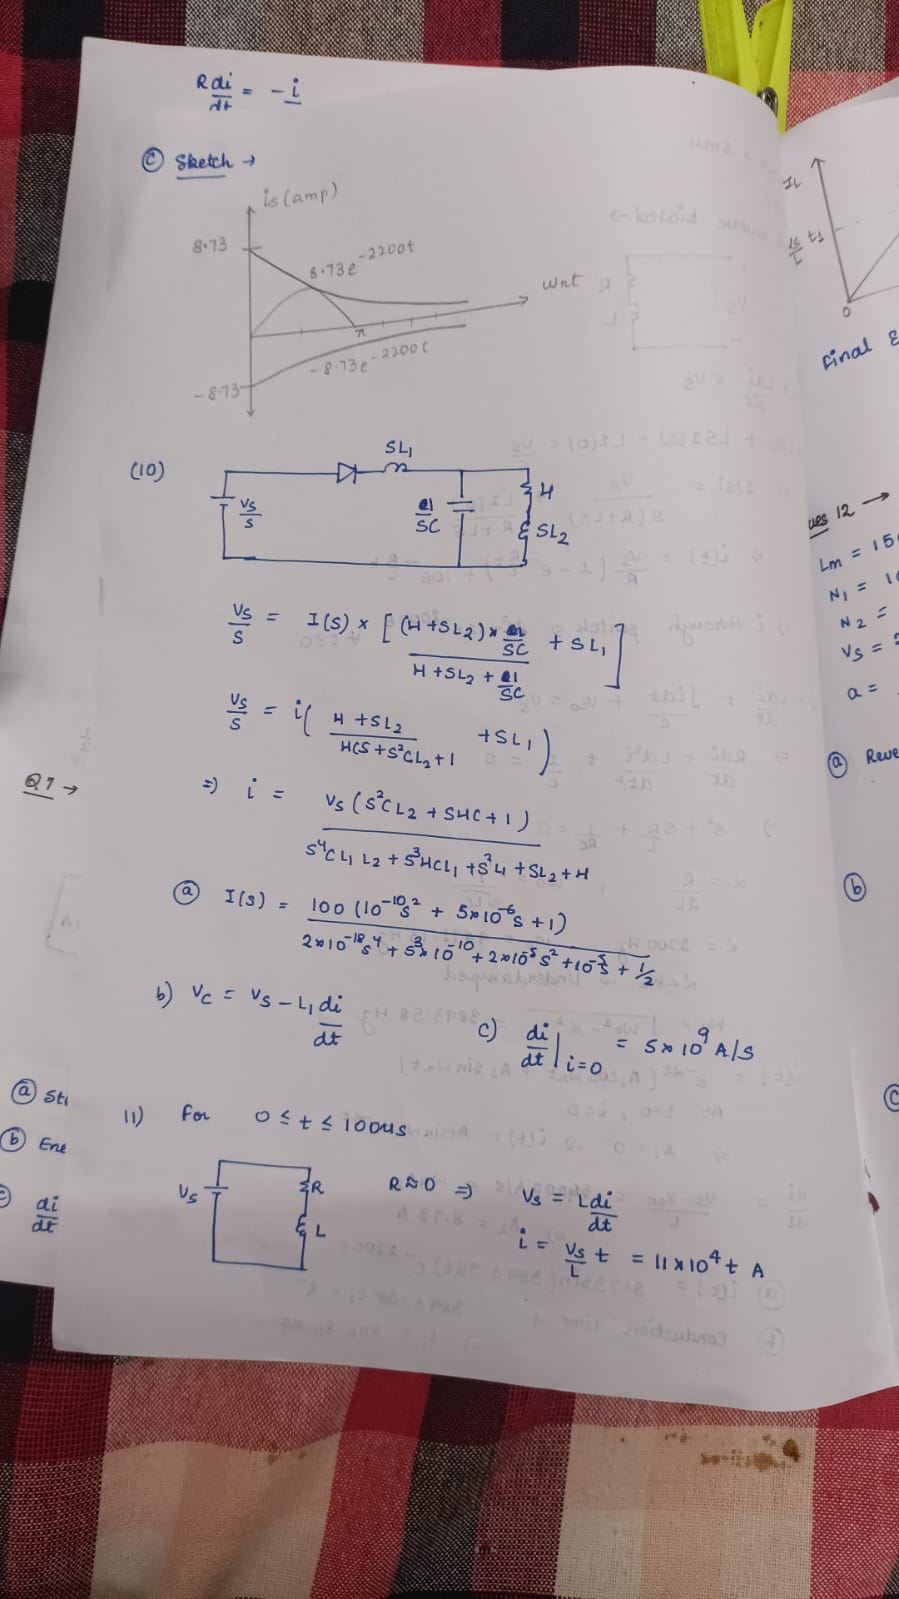 R di/dt = -i
(c) Sketch →
is (amp)
8.73
8.73e^-2200t
wnt
π
-8.73e^-2200t
-8.73
(10)
SL1
Vs/s
1/SC
H
SL2
Vs/s = I(S) × [ (H + SL2) × 1/SC / H + SL2 + 1/SC + SL1 ]
Vs/s = i( H + SL2 / HCS + S²CL2 + 1 + SL1 )
=) i = Vs (S²CL2 + SHC + 1) / S⁴CL1L2 + S³HCL1 + S²L1 + SL2 + H
(a) I(s) = 100 (10^-10 s² + 5×10^-6 s + 1) / 2×10^-18 s⁴ + s³×10^-10 + 2×10^-5 s² + 10^-5 s + 1/2
b) Vc = Vs - L1 di/dt
c) di/dt |i=0 = 5×10⁹ A/S
11) For 0 ≤ t ≤ 100us
Vs
R
L
R≈0 =) Vs = L di/dt
i = Vs/L t = 11×10⁴ t A
Q7 →
(a)
(b) Ene
di/dt
IL
Vs/L t1
0
Final E
Ques 12 →
Lm = 15
N1 = 1
N2 =
Vs = 2
a =
(a) Reve
(b)
(c)